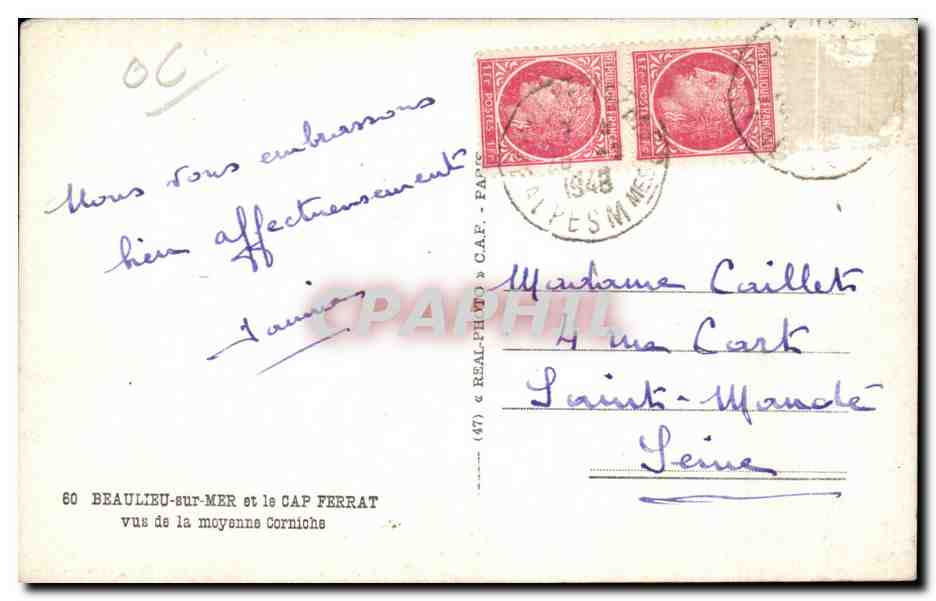 OC
Nous vous embrassons
bien affectueusement
Janine
60 BEAULIEU-sur-MER et le CAP FERRAT
vus de la moyenne Corniche
(47) « REAL-PHOTO » C.A.P. - PARIS
RÉPUBLIQUE FRANÇAISE
1F POSTES 1F
RÉPUBLIQUE FRANÇAISE
1F POSTES 1F
1948
ALPES MMES
Madame Caillet
4 rue Cart
Saint-Mandé
Seine
CPAPHIL